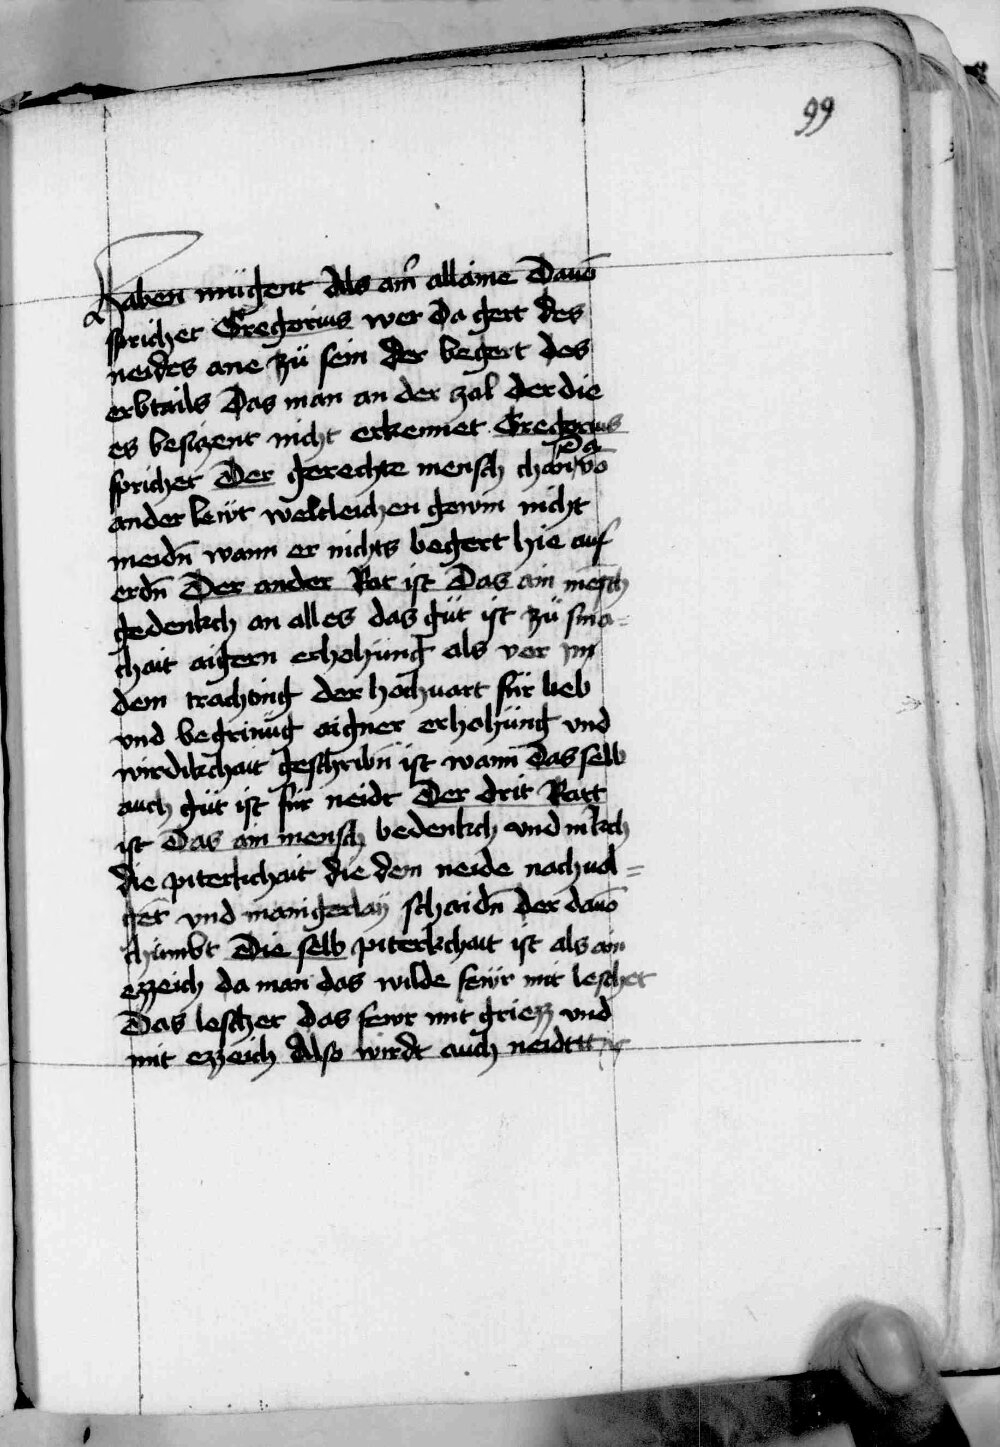 99
Haben mügent Als am̄ allaine Dauō
sprichet Gregorius wer Da gert des
neides ane zü sein der begert des
erbtails Das man an der zal der die
es besiczent nicht erkennet Gregorius
Da
sprichet Der gerechte mensch chan vō
ander lewt weltleichen gewin nicht
meidn̄ wann er nichts begert hie auf
erdn̄ Der ander Rat ist Das ain mēsch
gedenkch an alles das güt ist zü sma=
chait aigern erhohüng als vor im
dem trachting der hochuart für lieb
vnd begrinüg aigner erhohüng vnd
wirdikchait geschribn̄ ist wann Das selb
auch güt ist für neidt Der drit Ratt
ist Das ain mensch bedenkch vnd mkch
die piterkchait die dem neide nachuol=
gēt vnd manigerlaÿ schaidn̄ der dauō
chümbt Die selb piterkchait ist als ain
ezzeich da man das wilde fewr mit leschet
Das leschet das fewr mit griezz vnd
mit ezzeich Also wirdt auch neidttt